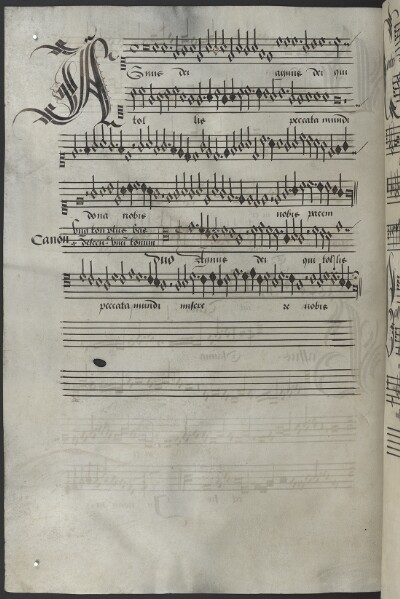 Agnus dei agnus dei qui
tol lis peccata mundi
dona nobis nobis pacem
Canon ung ton plus bas
duo Agnus dei qui tollis
peccata mundi misere re nobis